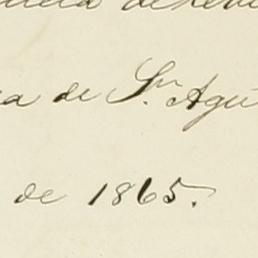 a de Sn. Agu
de 1865.